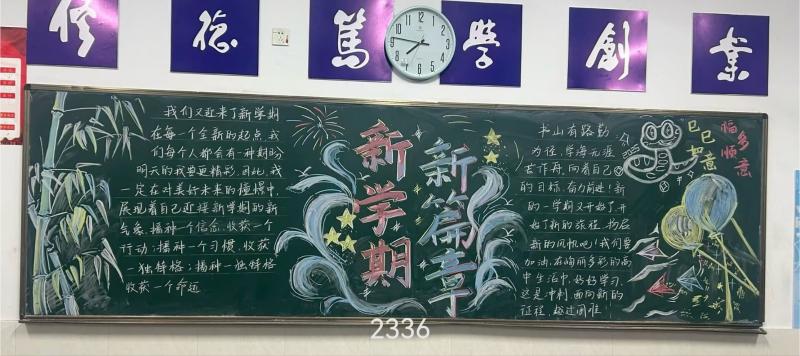 修德篤學創業
我们又迎来了新学期
在每一个全新的起点,我
们每个人都会有一种期盼
明天的我要更精彩,因此,我
一定在对美好未来的憧憬中,
展现着自己迎接新学期的新
气象。播种一个信念,收获一个
行动;播种一个习惯,收获
一独特格;播种一独特格
收获一个命运
新学期
新篇章
书山有路勤
为径,学海无涯
苦作舟,向着自己
的目标,奋力前进!新
的一学期又开始了,开
始了新的旅程,扬启
新的风帆吧!我们要
加油,在绚丽多彩的高
中生活中,好好学习,
这是冲刺,面向新的
征程,越过困难!
2025
巳巳如意
福多顺意
2336